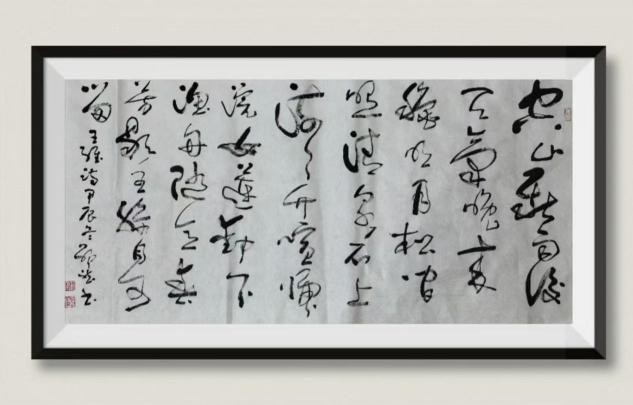 空山新雨後
天氣晚来
秋明月松间
照清泉石上
流竹喧歸
浣女蓮動下
漁舟随意春
芳歇王孫自可
留 王維詩甲辰冬 书